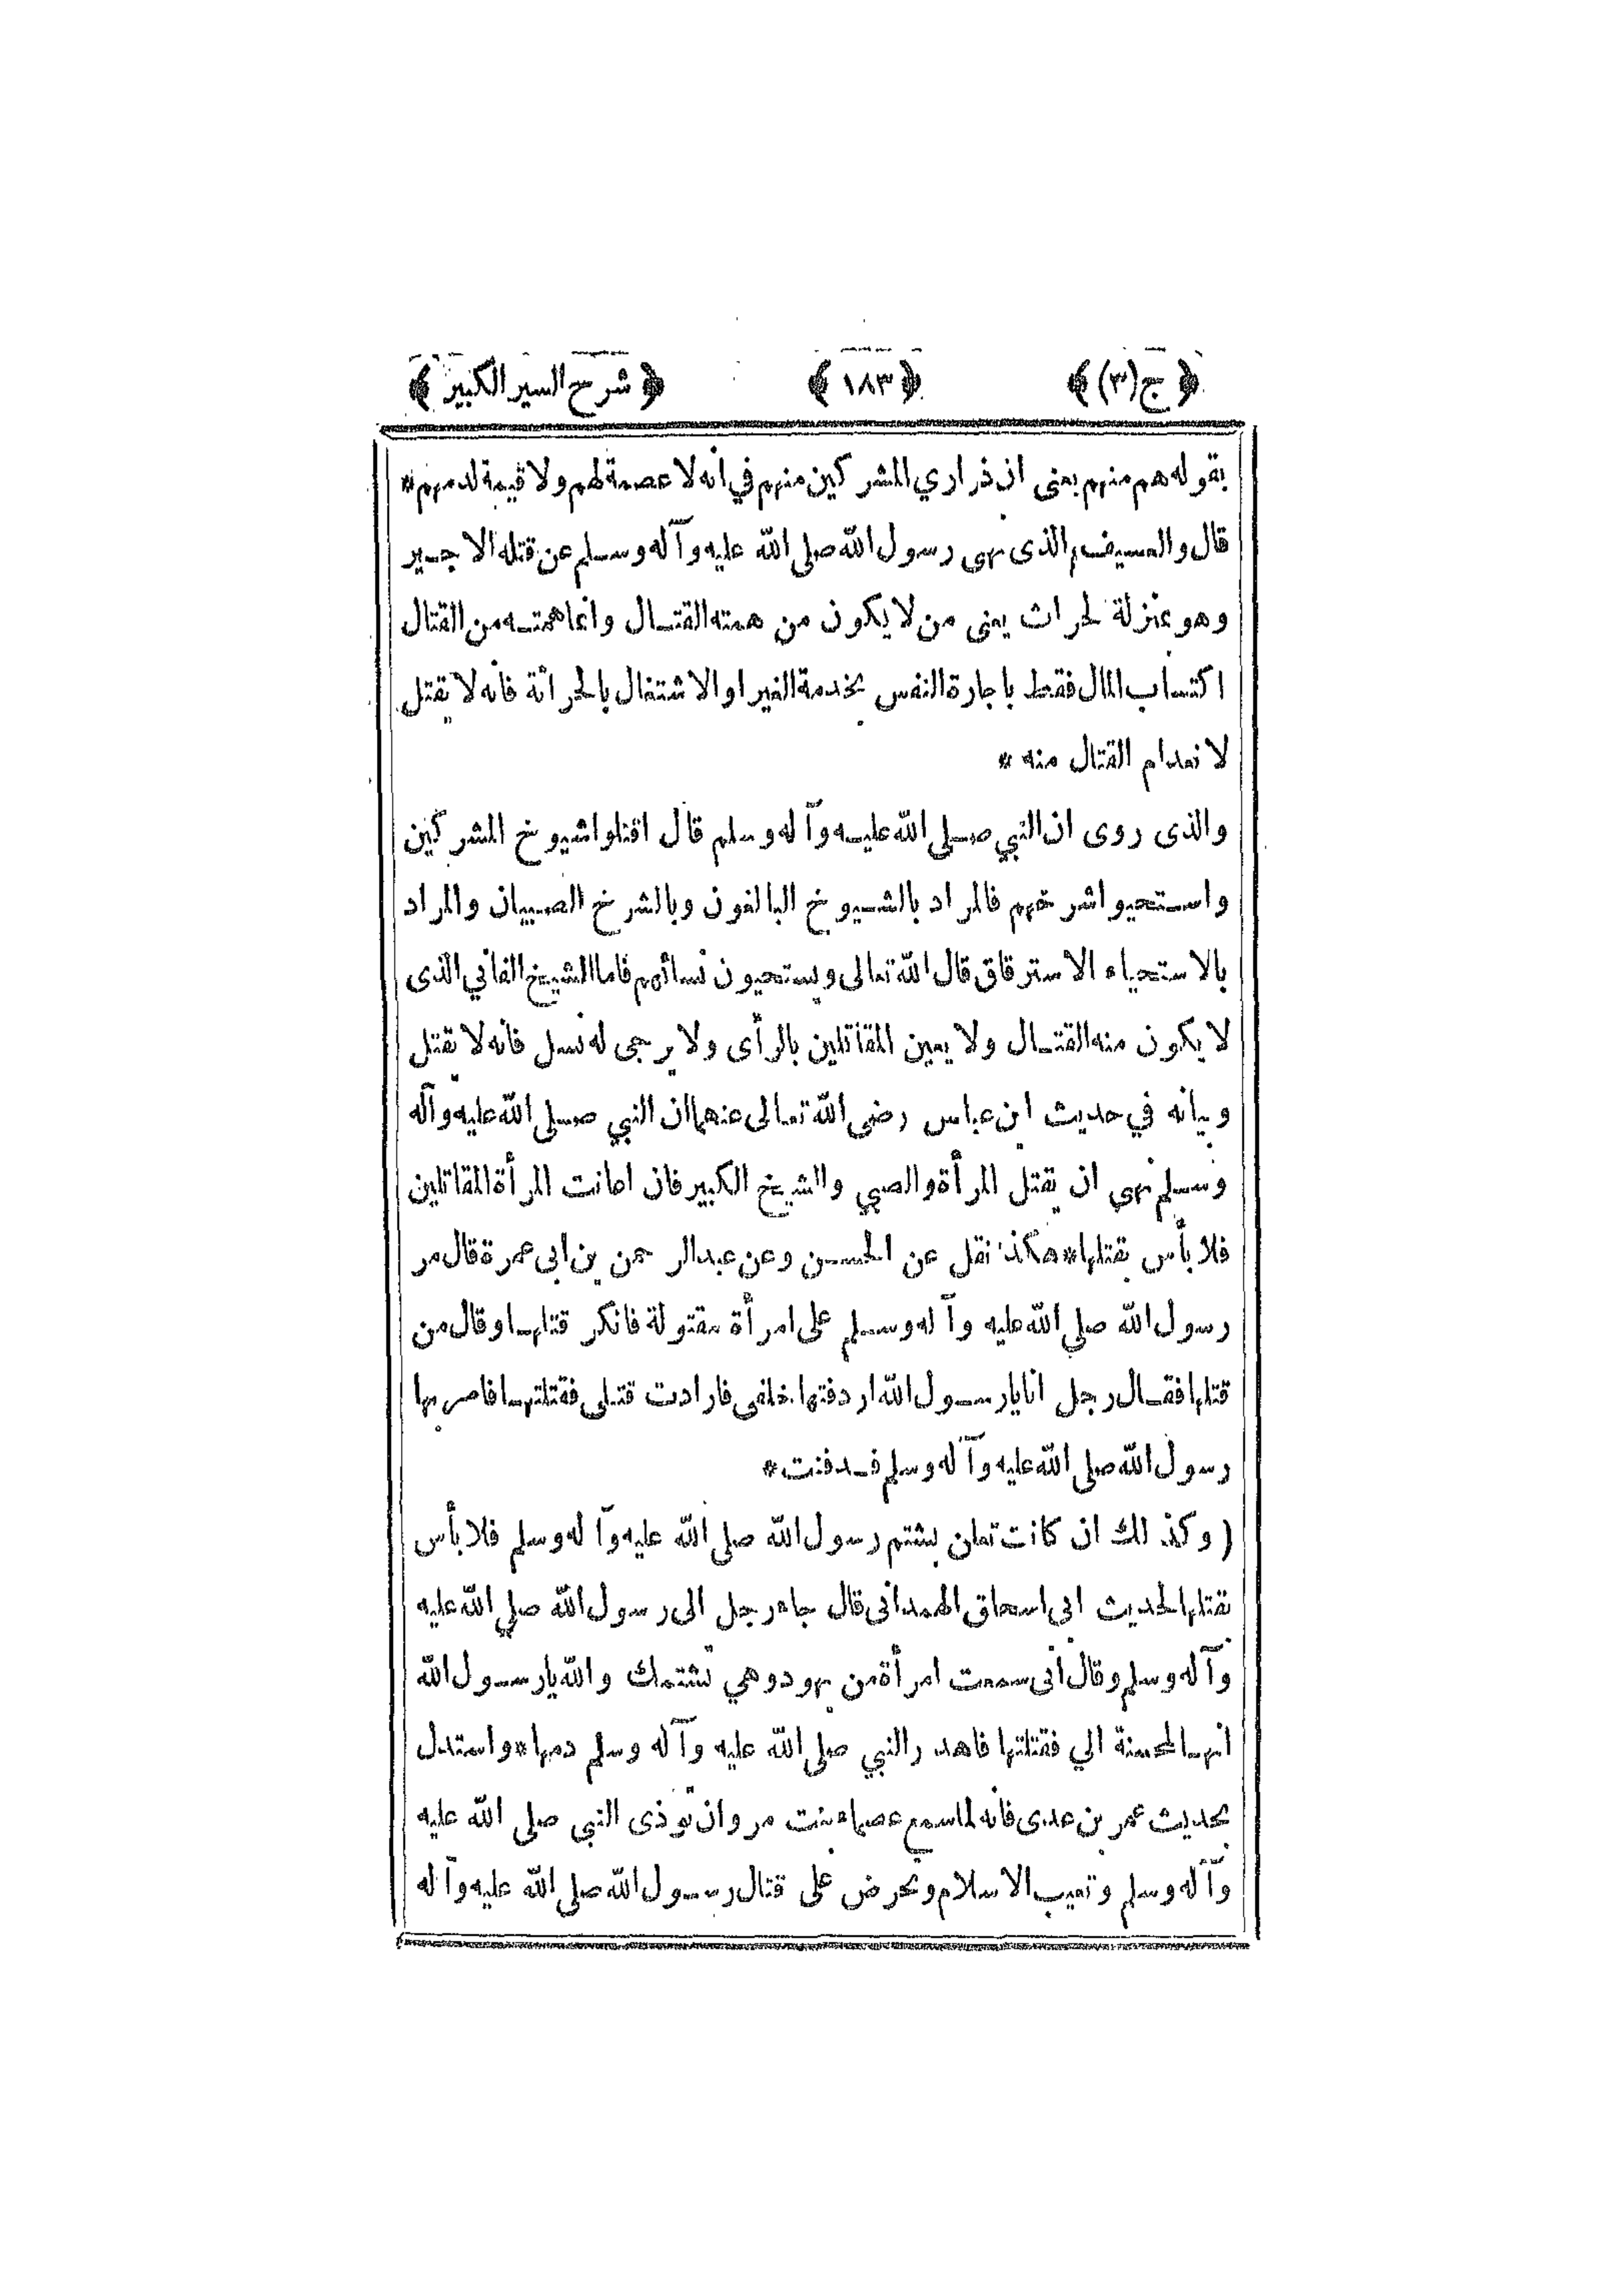 ﴿ ج (٣) ﴾ ﴿ ١٨٣ ﴾ ﴿ شرح السير الكبير ﴾
بقوله هم منهم يعنى ان ذراري المشركين منهم في انه لا عصمة لهم ولا قيمة لدمهم *
قال والعسيف الذى نهى رسول الله صلى الله عليه وآله وسلم عن قتله الاجير
وهو بمنزلة لحراث يعنى من لا يكون من همته القتال وانما همته من القتال
اكتساب المال فقط باجارة النفس بخدمة الغير او الاشتغال بالحراثة فانه لا يقتل
لانعدام القتال منه *
والذى روى ان النبي صلى الله عليه وآله وسلم قال اقتلوا شيوخ المشركين
واستحيوا شرخهم فالمراد بالشيوخ البالغون وبالشرخ الصبيان والمراد
بالاستحياء الاسترقاق قال الله تعالى ويستحيون نسائهم فاما الشيخ الفاني الذى
لا يكون منه القتال ولا يعين المقاتلين بالرأى ولا يرجى له نسل فانه لا يقتل
وبيانه في حديث ابن عباس رضى الله تعالى عنهما ان النبي صلى الله عليه وآله
وسلم نهى ان يقتل المرأة والصبي والشيخ الكبير فان اعانت المرأة المقاتلين
فلا بأس بقتلها * هكذا نقل عن الحسن وعن عبدالرحمن بن ابى عمرة قال مر
رسول الله صلى الله عليه وآله وسلم على امرأة مقتولة فانكر قتلها وقال من
قتلها فقال رجل انا يا رسول الله اردفتها خلفى فارادت قتلى فقتلتها فامر بها
رسول الله صلى الله عليه وآله وسلم فدفنت *
( وكذلك ان كانت تعلن بشتم رسول الله صلى الله عليه وآله وسلم فلا بأس
بقتلها لحديث ابى اسحاق الهمدانى قال جاء رجل الى رسول الله صلى الله عليه
وآله وسلم وقال انى سمعت امرأة من يهود وهي تشتمك والله يا رسول الله
انها لمحسنة الي فقتلتها فاهدر النبي صلى الله عليه وآله وسلم دمها * واستدل
بحديث عمر بن عدى فانه لما سمع عصماء بنت مروان تؤذى النبي صلى الله عليه
وآله وسلم وتعيب الاسلام وتحرض على قتال رسول الله صلى الله عليه وآله